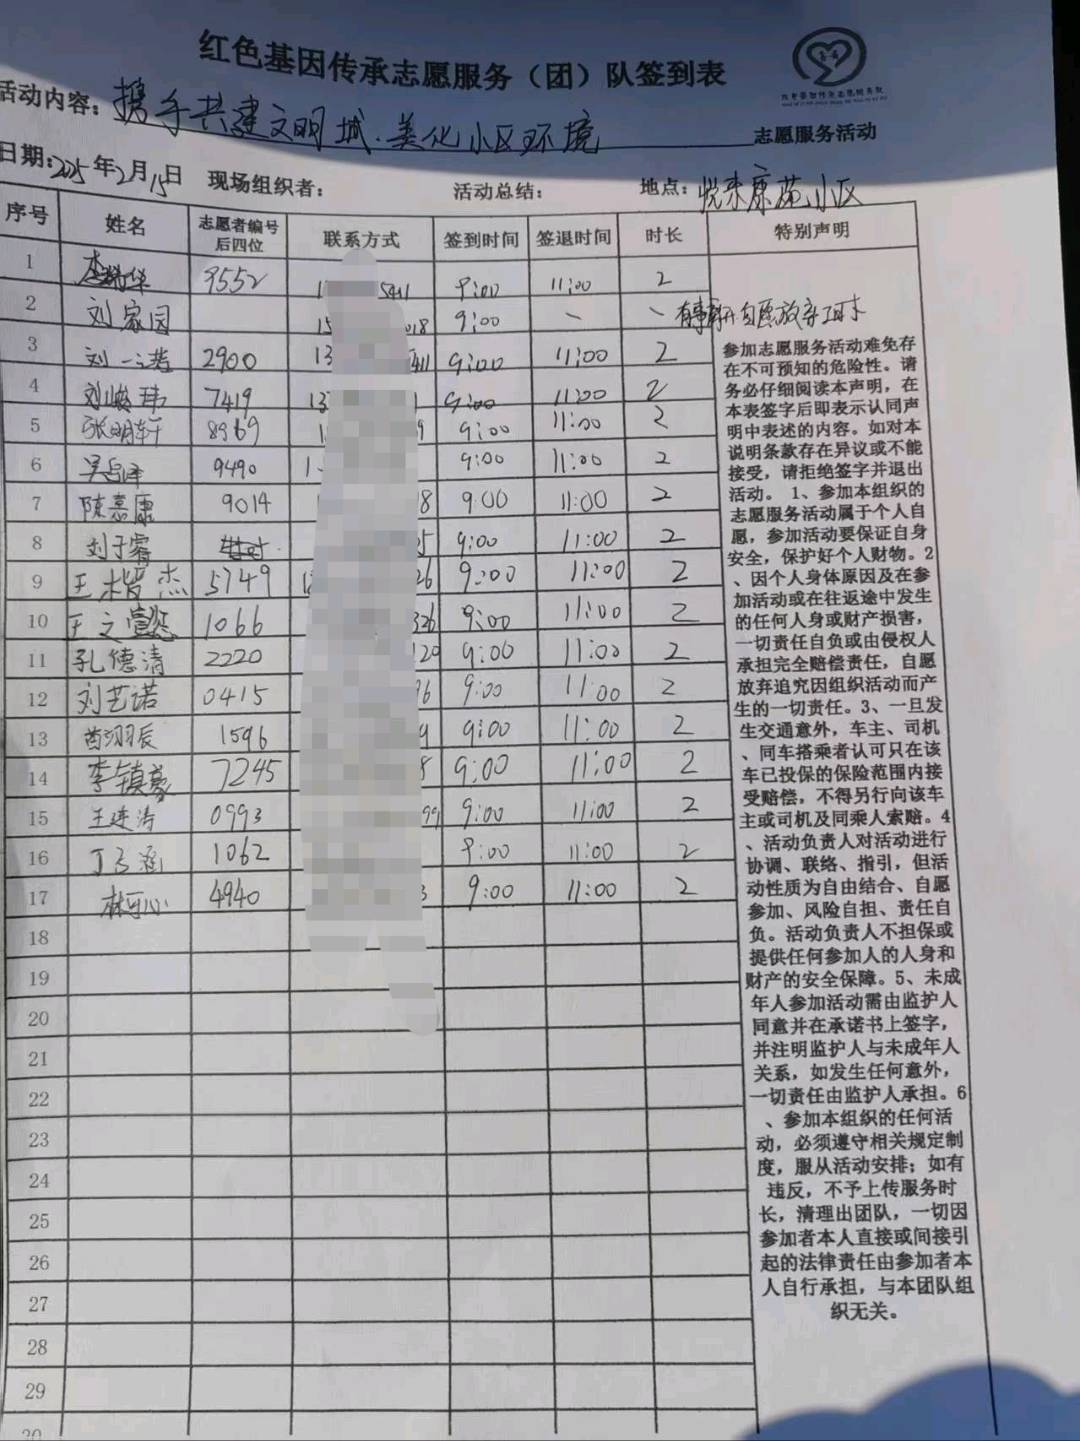 红色基因传承志愿服务（团）队签到表
活动内容：携手共建文明城·美化小区环境 志愿服务活动
日期：2025年2月15日 现场组织者： 活动总结： 地点：悦来康苑小区
序号 姓名 志愿者编号后四位 联系方式 签到时间 签退时间 时长 特别声明
1 9552 5411 9:00 11:00 2
2 刘家园 018 9:00 - - 有事 自愿放弃工时
3 刘一诺 2900 13 411 9:00 11:00 2
4 刘峻玮 7419 13 9:00 11:00 2
5 张明轩 8969 9 9:00 11:00 2
6 9490 9:00 11:00 2
7 陈嘉康 9014 8 9:00 11:00 2
8 刘子睿 5 9:00 11:00 2
9 王楷杰 5749 26 9:00 11:00 2
10 王文懿 1066 326 9:00 11:00 2
11 孔德清 2220 120 9:00 11:00 2
12 刘艺诺 0415 6 9:00 11:00 2
13 苗羽辰 1596 9 9:00 11:00 2
14 李镇豪 7245 8 9:00 11:00 2
15 王连涛 0993 99 9:00 11:00 2
16 丁子涵 1062 9:00 11:00 2
17 林可心 4940 3 9:00 11:00 2
18
19
20
21
22
23
24
25
26
27
28
29
30
参加志愿服务活动难免存
在不可预知的危险性。请
务必仔细阅读本声明，在
本表签字后即表示认同声
明中表述的内容。如对本
说明条款存在异议或不能
接受，请拒绝签字并退出
活动。 1、参加本组织的
志愿服务活动属于个人自
愿，参加活动要保证自身
安全，保护好个人财物。2
、因个人身体原因及在参
加活动或在往返途中发生
的任何人身或财产损害，
一切责任自负或由侵权人
承担完全赔偿责任，自愿
放弃追究因组织活动而产
生的一切责任。3、一旦发
生交通意外，车主、司机
、同车搭乘者认可只在该
车已投保的保险范围内接
受赔偿，不得另行向该车
主或司机及同乘人索赔。4
、活动负责人对活动进行
协调、联络、指引，但活
动性质为自由结合、自愿
参加、风险自担、责任自
负。活动负责人不担保或
提供任何参加人的人身和
财产的安全保障。5、未成
年人参加活动需由监护人
同意并在承诺书上签字，
并注明监护人与未成年人
关系，如发生任何意外，
一切责任由监护人承担。6
、参加本组织的任何活
动，必须遵守相关规定制
度，服从活动安排；如有
违反，不予上传服务时
长，清理出团队，一切因
参加者本人直接或间接引
起的法律责任由参加者本
人自行承担，与本团队组
织无关。